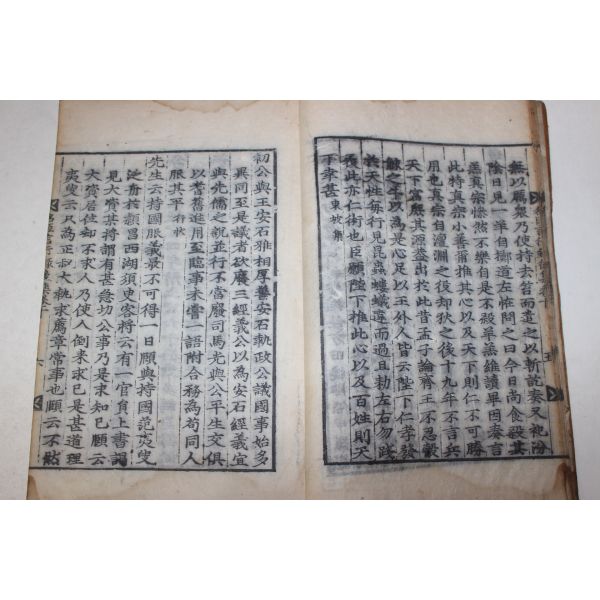 無以屬衆乃使持去笞而遣之以斬訖奏又祀汾
陰日見一羊自擲道左怪問之曰今日尚食殺其
羔真宗慘然不樂自是不殺羊羔維讀畢因奏言
此特真宗小善耳推其心以及天下則仁不可勝
用也真宗自澶淵之役却狄之後十九年不言兵
天下富庶其源盖出於此昔孟子論齊王不忍觳
觫之牛以為是心足以王外人皆云陛下仁孝發
於天性每行見昆蟲螻蟻違而過且勑左右勿踐
履此亦仁術也臣願陛下推此心以及百姓則天
下幸甚 東坡集
初公與王安石雅相厚善安石執政公議國事始多
異同至是議者欲廢三經義公以為安石經義宜
與先儒之說並行不當廢司馬光與公平生交俱
以耆舊進用至臨事未嘗一語附合務為苟同人
服其平 行狀
先生云持國服義最不可得一日頤與持國范夷叟
泛舟於潁昌西湖須臾客將云有一官員上書謁
見大資某將謂有甚急切公事乃是求知己頤云
大資居位却不求人乃使人倒來求己是甚道理
夷叟云只為正叔大執求薦章常事也頤云不然